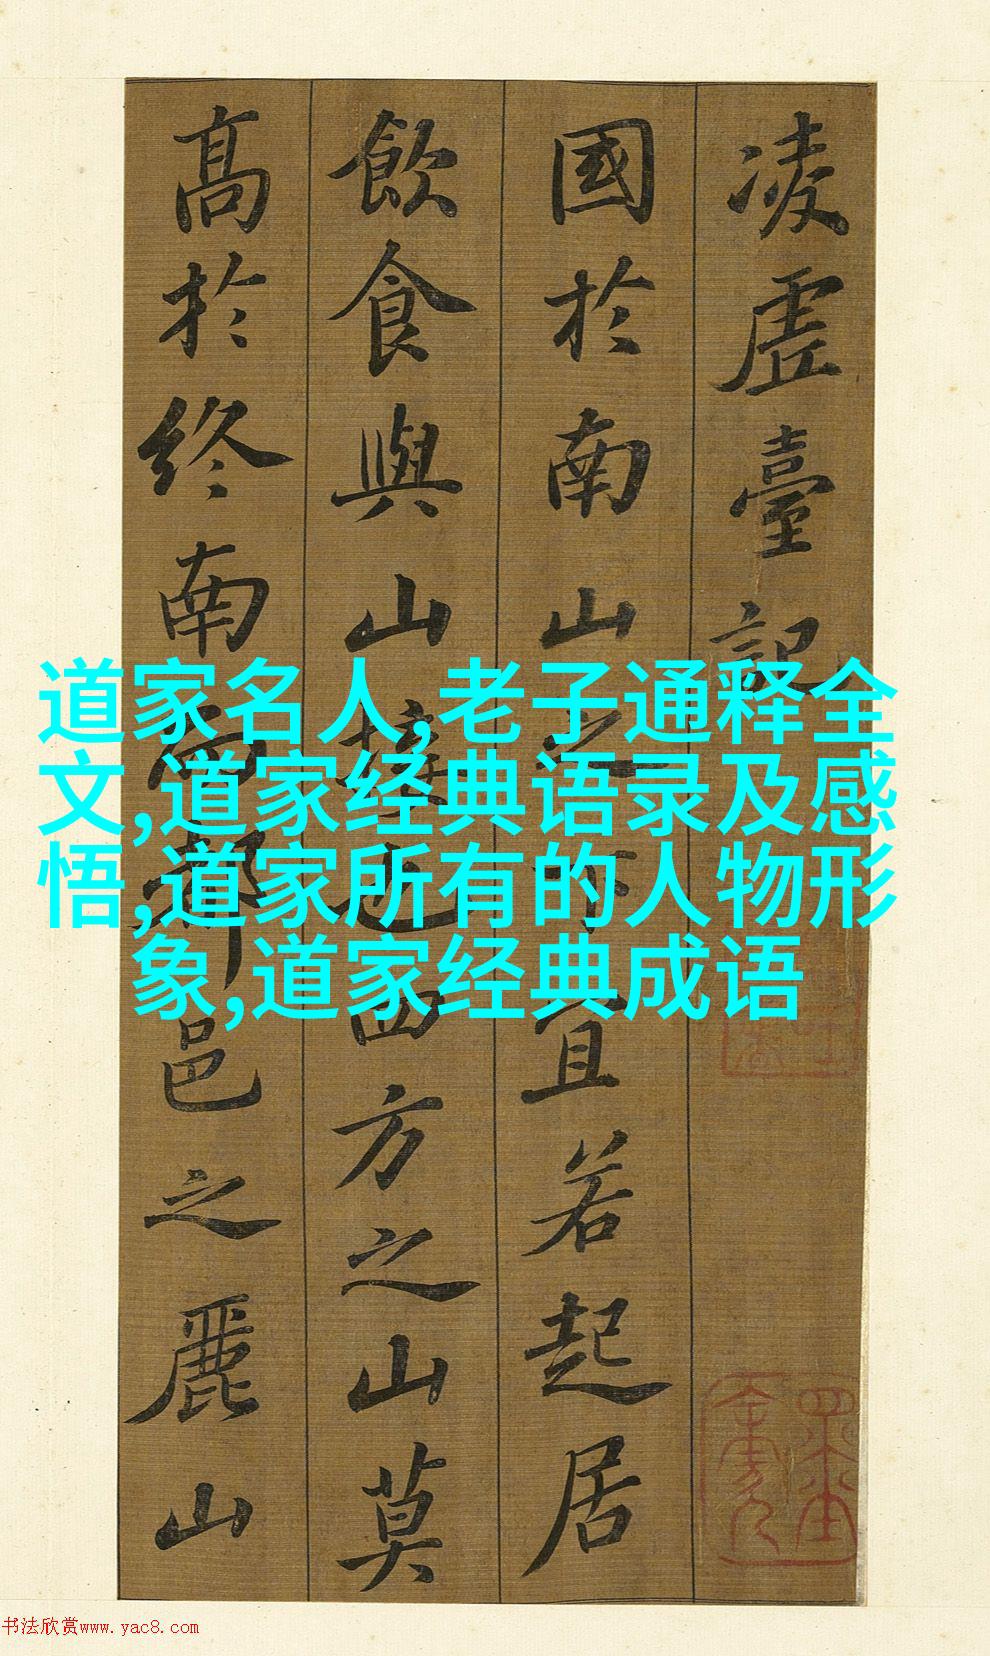 凌虛臺記
國於南山之下宜若起居
飲食與山接也四方之山莫
高於終南而都邑之麗山
道家名人,老子通释全
文,道家经典语录及感
悟,道家所有的人物形
象,道家经典成语
书法欣赏www.yac8.com